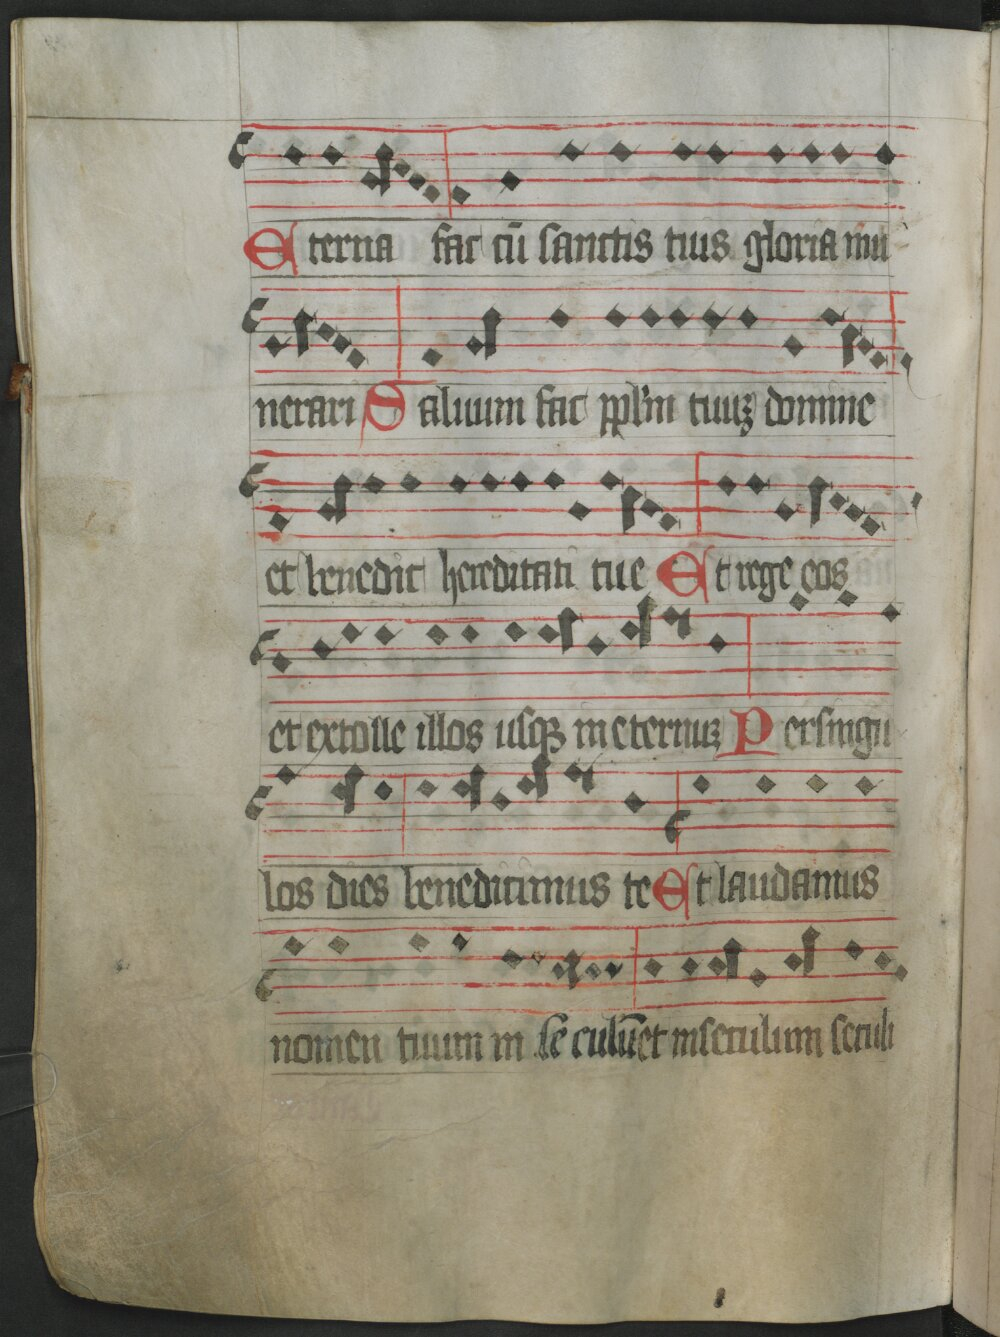 Eterna fac cū sanctis tuis gloria mu
nerari Saluum fac pplm tuuꝫ domine
et benedic hereditati tue Et rege eos
et extolle illos usqꝫ in eternuꝫ Per singu
los dies benedicimus te Et laudamus
nomen tuum in seculū et in seculum seculi